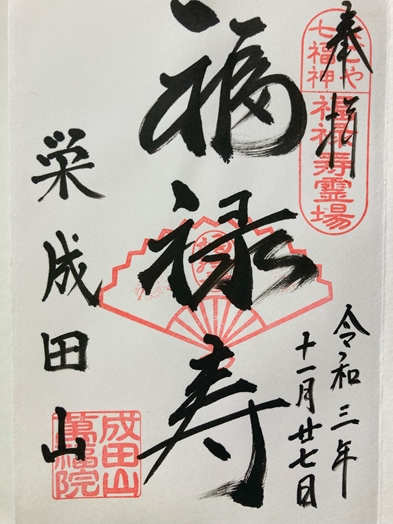 奉拝
なごや
七福神
福禄寿霊場
福禄寿
令和三年
十一月廿七日
栄成田山
成田山
萬福院